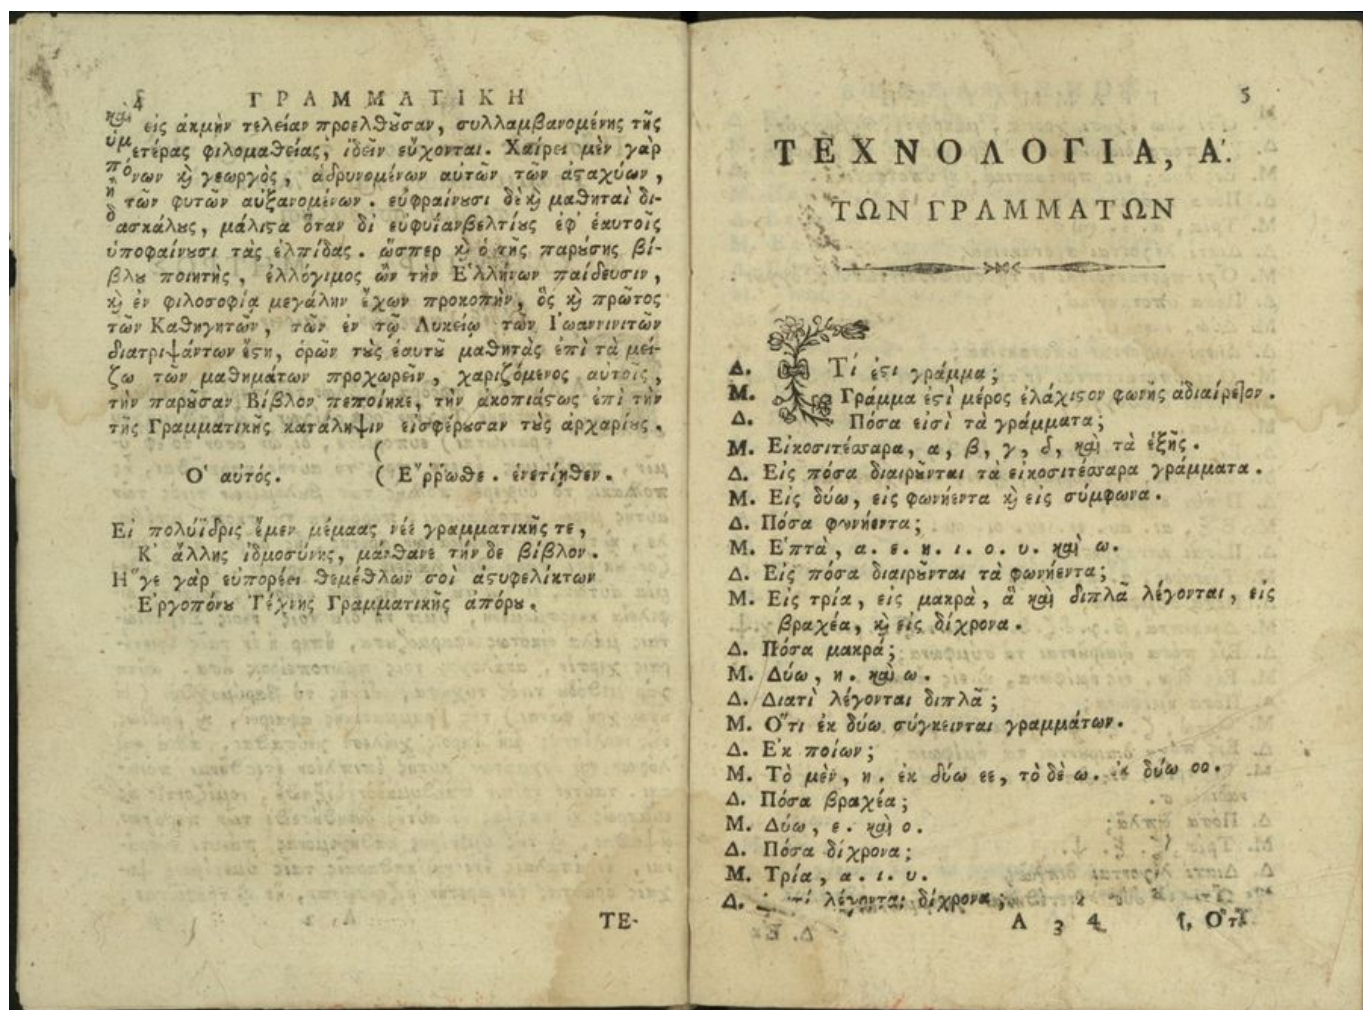 4 ΓΡΑΜΜΑΤΙΚΗ
καὶ εἰς ἀκμὴν τελείαν προελθȣ͂σαν, συλλαμβανομένης τῆς
ὑμετέρας φιλομαθείας, ἰδεῖν εὔχονται. Χαίρει μὲν γὰρ
πόνων ϗ γεωργὸς, ἁδρυνομένων αυτῶν τῶν ἀϛαχύων,
ἢ τῶν φυτῶν αὐξανομένων. εὐφραίνȣσι δὲ ϗ μαθηταὶ δι-
δασκάλȣς, μάλιϛα ὅταν δι' εὐφυΐαν βελτίȣς ἐφ' ἑαυτοῖς
ὑποφαίνȣσι τὰς ἐλπίδας. ὥσπερ ϗ ὁ τῆς παρȣ́σης βί-
βλȣ ποιητής, ἐλλόγιμος ὢν τὴν Ἑλλήνων παίδευσιν,
ϗ ἐν φιλοσοφίᾳ μεγάλην ἔχων προκοπὴν, ὃς ϗ πρῶτος
τῶν Καθηγητῶν, τῶν ἐν τῷ Λυκείῳ τῶν Ἰωαννινιτῶν
διατριψάντων ἔτη, ὁρῶν τȣ̀ς ἑαυτȣ͂ μαθητὰς ἐπὶ τὰ μεί-
ζω τῶν μαθημάτων προχωρεῖν, χαριζόμενος αὐτοῖς,
τὴν παρȣ͂σαν Βίβλον πεποίηκε, τὴν ἀκοπιάϛως ἐπὶ τὴν
τῆς Γραμματικῆς κατάληψιν εἰσφέρȣσαν τȣ̀ς ἀρχαρίȣς.
Ὁ αὐτός. ( Ἔῤῥωσθε. ἐνετίηθεν.
Εἰ πολύϊδρις ἔμεν μέμαας νέε γραμματικῆς τε,
Κ' ἄλλης ἰδμοσύνης, μάνθανε τήν δε βίβλον.
Ἥγε γὰρ εὐπορέει θεμέθλων σοὶ ἀϛυφελίκτων
Ἐργοπόνȣ Τέχνης Γραμματικῆς ἀπόρȣ.
ΤΕ-
5
ΤΕΧΝΟΛΟΓΙΑ, Α'.
ΤΩΝ ΓΡΑΜΜΑΤΩΝ
Δ. Τί ἐϛι γράμμα;
Μ. Γράμμα ἐϛὶ μέρος ἐλάχιϛον φωνῆς ἀδιαίρετον.
Δ. Πόσα εἰσὶ τὰ γράμματα;
Μ. Εἰκοσιτέσσαρα, α, β, γ, δ, καὶ τὰ ἑξῆς.
Δ. Εἰς πόσα διαιρȣ͂νται τὰ εἰκοσιτέσσαρα γράμματα.
Μ. Εἰς δύω, εἰς φωνήεντα ϗ εἰς σύμφωνα.
Δ. Πόσα φωνήεντα;
Μ. Ἑπτὰ, α. ε. η. ι. ο. υ. καὶ ω.
Δ. Εἰς πόσα διαιρȣ͂νται τὰ φωνήεντα;
Μ. Εἰς τρία, εἰς μακρὰ, ἃ καὶ διπλᾶ λέγονται, εἰς
βραχέα, ϗ εἰς δίχρονα.
Δ. Πόσα μακρά;
Μ. Δύω, η. καὶ ω.
Δ. Διατὶ λέγονται διπλᾶ;
Μ. Ὅτι ἐκ δύω σύγκεινται γραμμάτων.
Δ. Ἐκ ποίων;
Μ. Τὸ μὲν, η. ἐκ δύω εε, τὸ δὲ ω. ἐκ δύω οο.
Δ. Πόσα βραχέα;
Μ. Δύω, ε. καὶ ο.
Δ. Πόσα δίχρονα;
Μ. Τρία, α. ι. υ.
Δ. λέγονται δίχρονα;
Α 3 4 Ὅτι